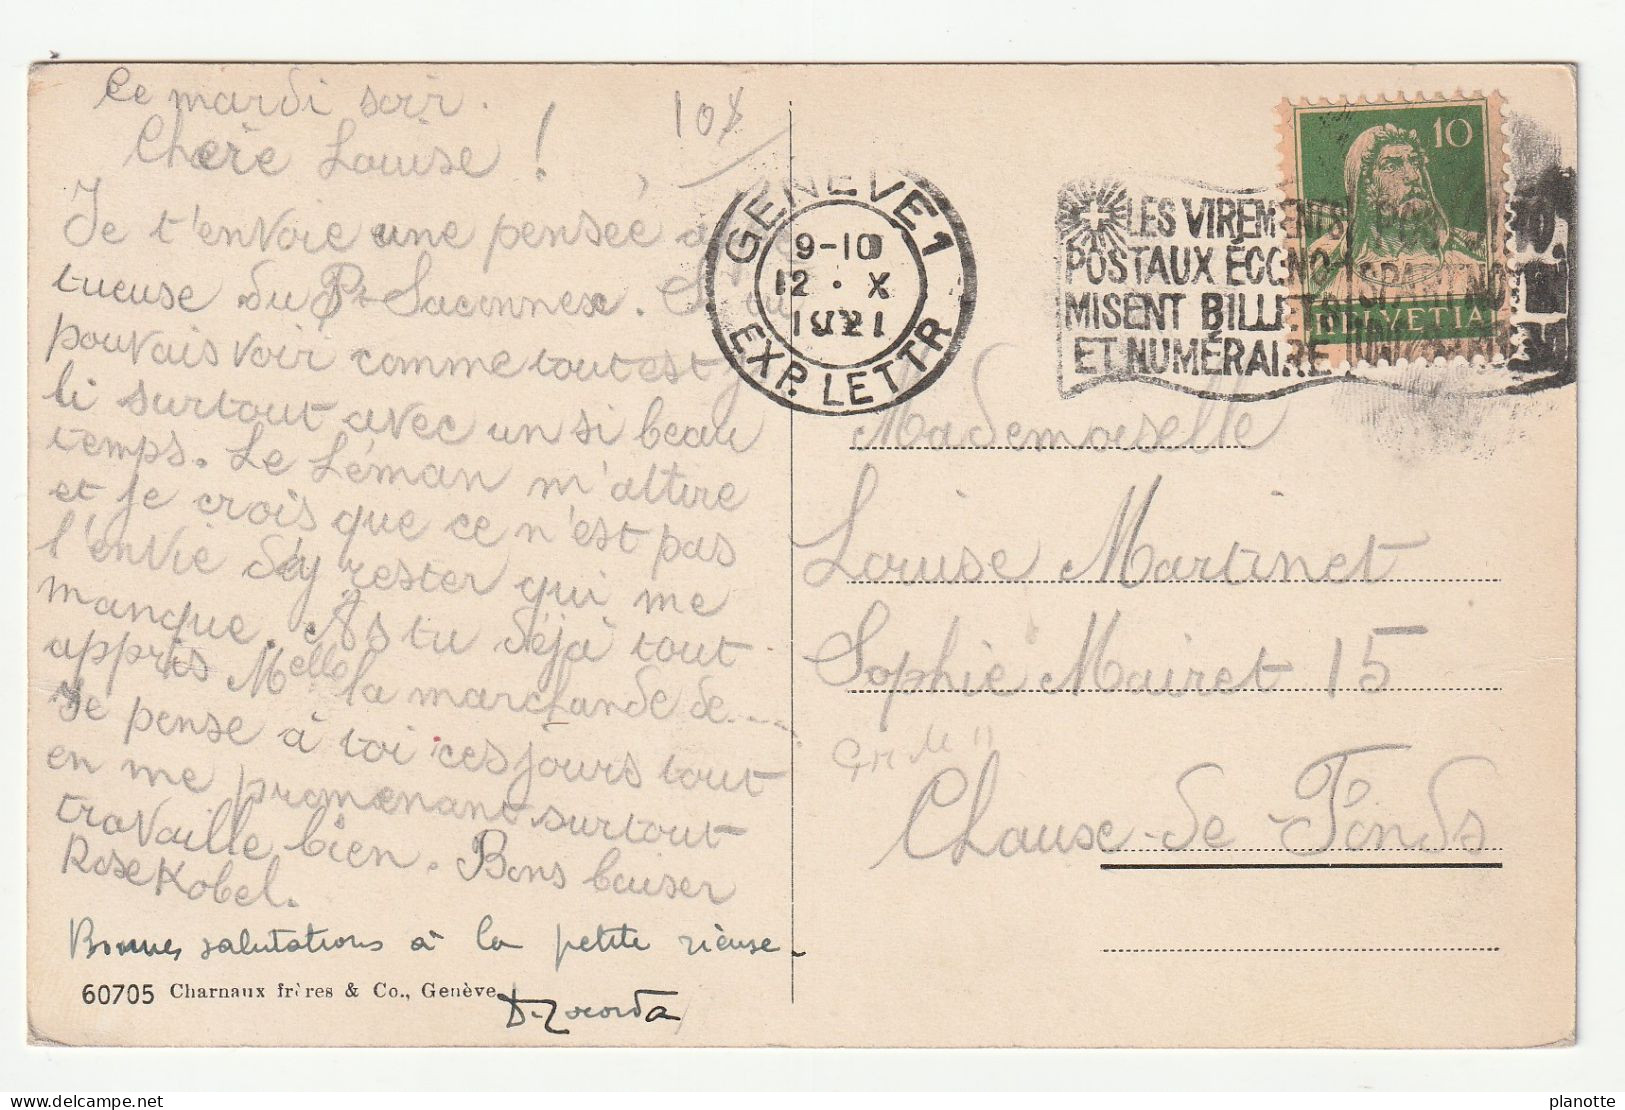 Ce mardi soir.
Chère Louise !
10
Je t'envoie une pensée
tueuse du Pt Saconnex. Si tu
pouvais voir comme tout est jo
li surtout avec un si beau
temps. Le Léman m'attire
et je crois que ce n'est pas
l'envie d'y rester qui me
manque. As tu déjà tout
appris Melle la marchande de ....
Je pense à toi ces jours tout
en me promenant surtout
travaille bien. Bons baiser
Rose Kobel.
Bonnes salutations à la petite rieuse.
60705 Charnaux frères & Co., Genève
GENÈVE 1
9-10
12 . X
1921
EXP. LETTR
LES VIREMENTS
POSTAUX ÉCONO-
MISENT BILLETS
ET NUMÉRAIRE
10
HELVETIA
Mademoiselle
Louise Martinet
Sophie Mairet 15
Chause-de-Fonds
planotte